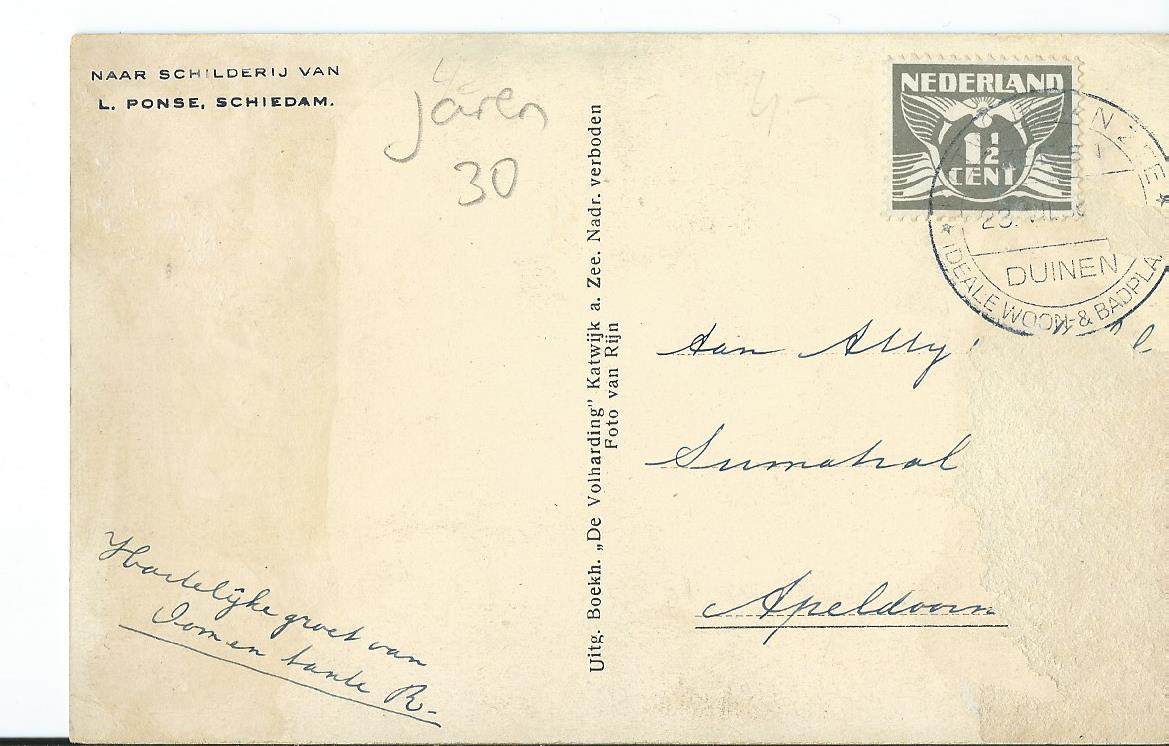 NAAR SCHILDERIJ VAN
L. PONSE, SCHIEDAM.
Jaren
30
4,-
Uitg. Boekh. „De Volharding" Katwijk a. Zee. Nadr. verboden
Foto van Rijn
NEDERLAND
1½
CENT
DUINEN
IDEALE WOON- & BADPLA
Aan Ally
Sumatral
Apeldoorn
Hartelijke groet van
Oom en tante R.